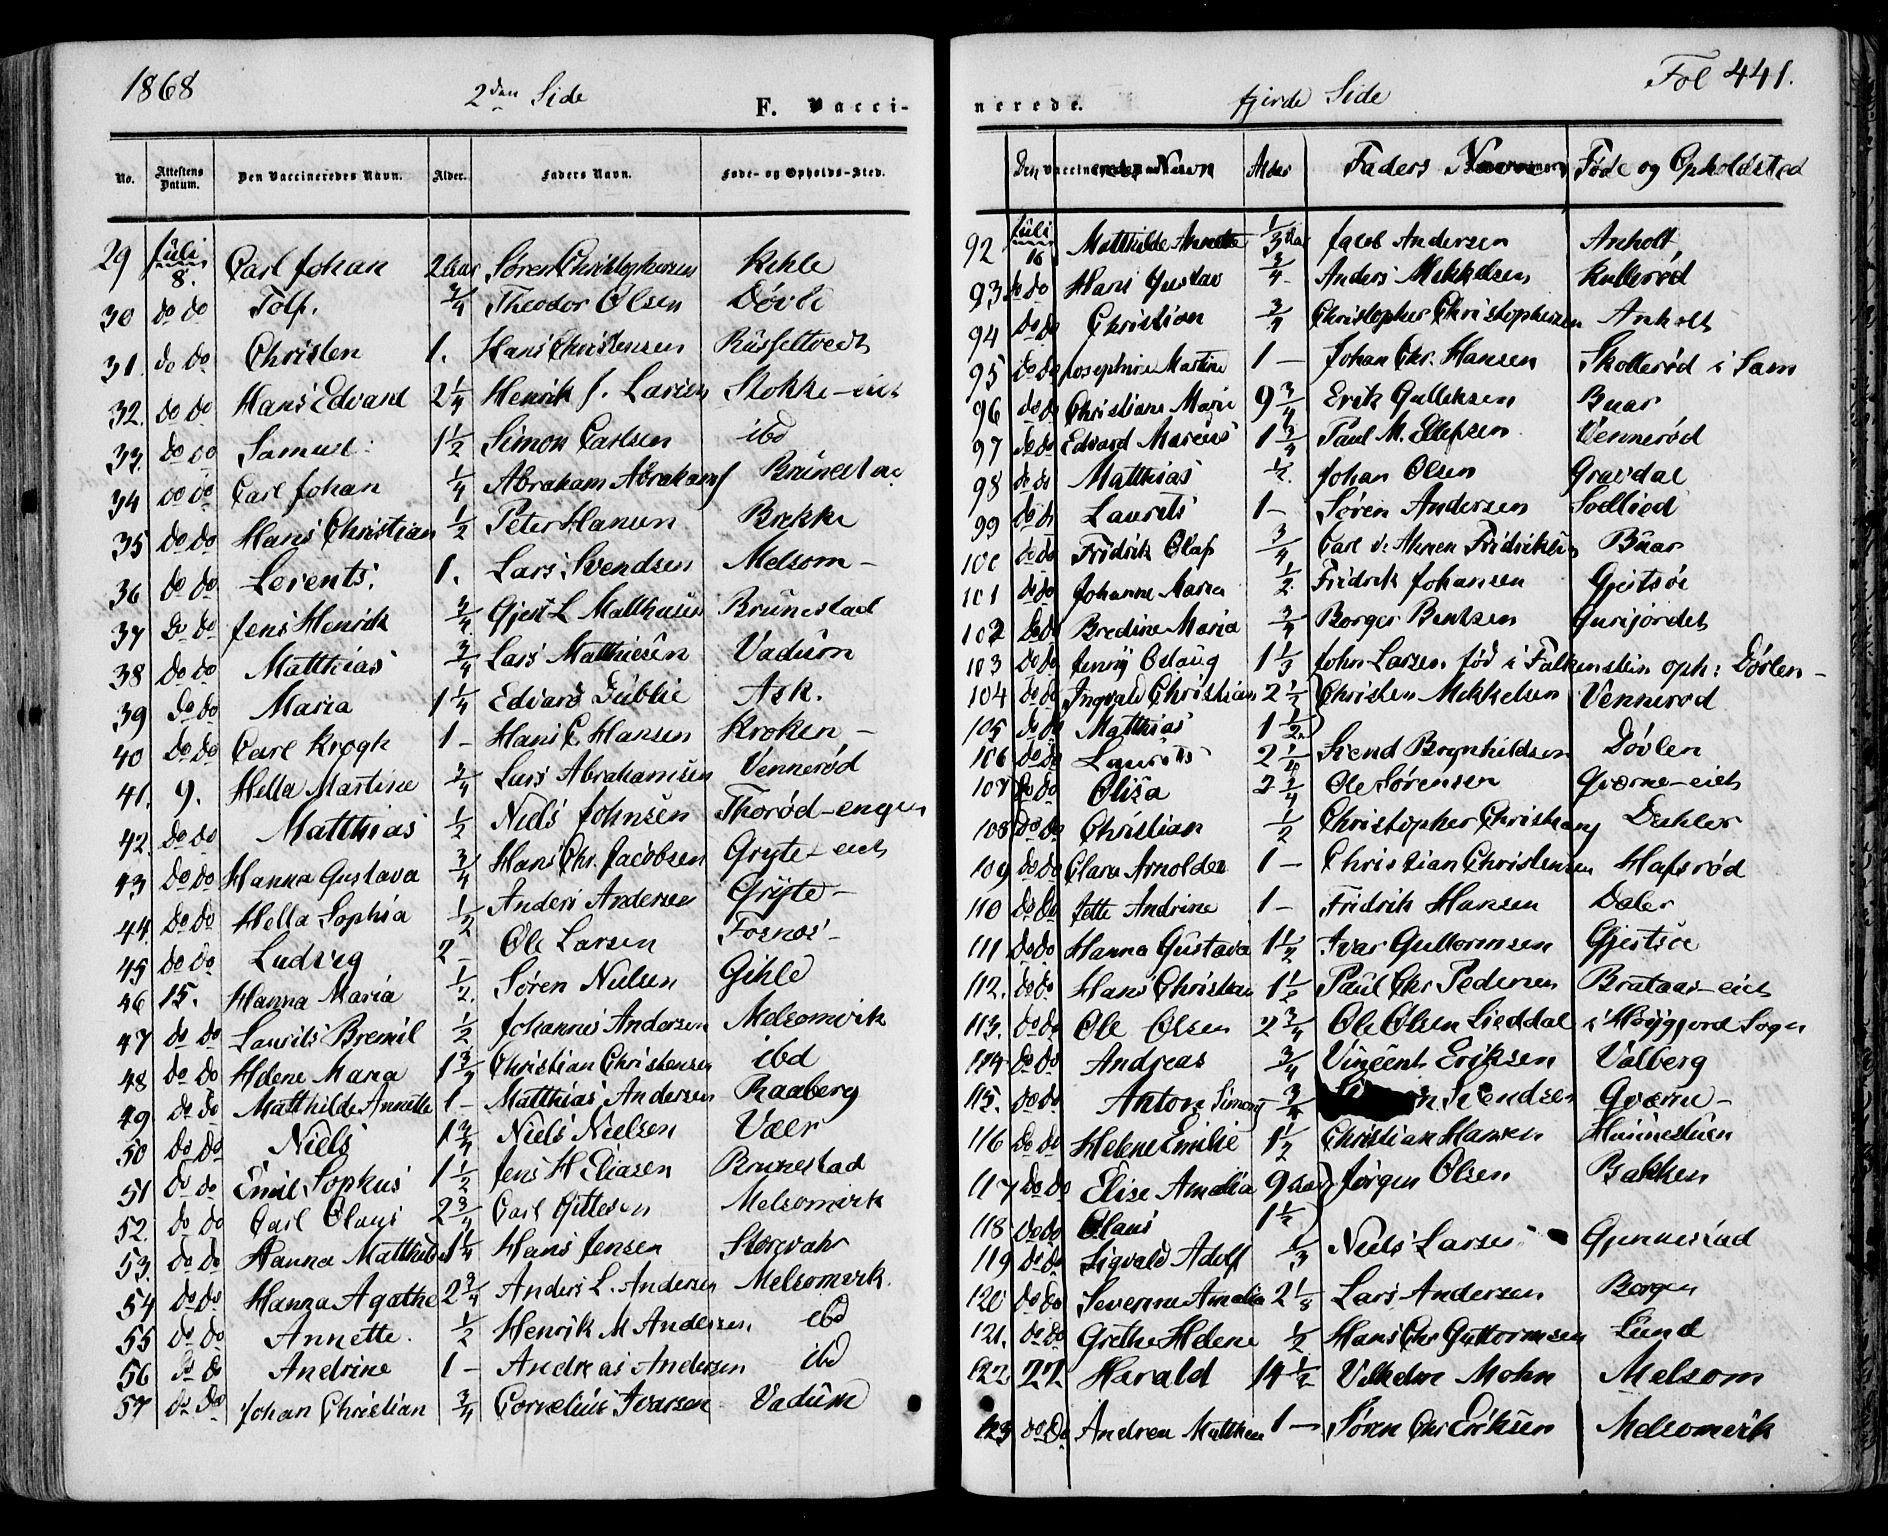 1868
2den Side
F. Vacci-
No. Attestens Datum. Den Vaccineredes Navn. Alder. Faders Navn. Føde- og Opholds-Sted.
29 Juli 8. Carl Johan 2 aar Søren Christophersen Kihle
30 do do Tolf. 3/4 Theodor Olsen Døvle
31. do do Christen 1. Hans Christensen Russeltvedt
32. do do Hans Edvard 2 1/4 Henrik J. Larsen Stokke-eiet
33. do do Samuel 1 1/2 Simon Carlsen ibd
34 do do Carl Johan 1/4 Abraham Abrahams Brunestad
35 do do Hans Christian 1/2 Peter Hansen Brekke
36 do do Lorents. 1. Lars Svendsen Melsom -
37 do do Jens Henrik 3/4 Gjert L Matthisen Brunestad
38 do do Matthias 3/4 Lars Matthiesen Vadum
39 do do Maria 1 1/4 Edvard Ask.
40 do do Carl Krogh 1 - Hans C Hansen Kroken -
41. 9. Hella Martine 3/4 Lars Abrahamsen Vennerød
42. do do Matthias 1/2 Niels Johnsen Thorød-engen
43 do do Hanna Gustava 3/4 Hans Chr. Jacobsen Gryte-eiet
44. do do Hella Sophia 1/2 Anders Andersen Gryte -
45 do do Ludvig 2 - Ole Larsen Fosnes -
46 15. Hanna Maria 1/2. Søren Nielsen Gihle
47 do do Laurits Bremil 1/2 Johannes Andersen Melsomvik
48 do do Helene Maria 1 3/4 Christian Christensen ibd
49. do do Matthilde Annette 1 - Matthias Andersen Raaberg
50 do do Niels 1 3/4 Niels Nielsen Vær
51 do do Emil Sophus 1 1/2 Jens H Eliasen Brunestad
52. do do Carl Olaus 2 3/4 Carl Gittesen Melsomvik
53. do do Hanna Matthilde 1 1/4 Hans Jensen Storevahr
54 do do Hanna Agathe 2 3/4 Anders L. Andersen Melsomvik.
55 do do Annette. 1/2 Henrik M Andersen ibd
56 do do Andrine 1 - Andreas Andersen ibd
57 do do Johan Christian 3/4 Cornelius Ivarsen Vadum
Fol 441.
fjerde Side
nerede.
Den Vaccineredes Navn Alder Faders Navn Føde og Opholdsted
92 Juli 16 Matthilde Annette 1/3 aar Jacob Andersen Anholt
93 do do Hans Gustav 3/4 - Anders Mikkelsen Kullerød
94 do do Christian 3/4 Christopher Christophersen Anholt
95 do do Josephine Martine 1 - Johan Chr. Hansen Skollerød i Sam
96 do do Christiane Marie 9 3/4 Erik Gulliksen Buar
97 do do Edvard Marius 1 3/4 Paul M. Ellefsen Vennerød
98 do do Matthias 1/2. Johan Olsen Gravdal
99 do do Laurits 1 - Søren Andersen
100 do do Fridrik Olaf 3/4 Carl Fridriksen Buar
101 do do Johanne Maria 1/2 Fridrik Johansen Gjertsøe
102 do do Bredine Maria 3/4 Borger Bentsen Gurijordet
103 do do Jenny Odaug 1 1/3 John Larsen fød i Falkensten oph: Døvlen -
104 do do Ingvald Christian 2 1/2 Christen Mikkelsen Vennerød
105 do do Matthias 1 1/2
106 do do Laurits 2 1/4 Svend Brynhildsen Døvlen
107 do do Olisa 2 3/4 Ole Sørensen Gværne-eiet
108 do do Christian 1/2 Christopher Christians Dahler
109 do do Clara Arnolden 1 - Christian Christensen Hafsrød
110 do do Jette Andrine 1 - Fridrik Hansen Daler
111 do do Hanna Gustava 1 1/2 Ivar Guttormsen Gjertsøe
112. do do Hans Christian 1 1/2 Paul Chr Pedersen Brataas-eiet
113. do do Ole Olsen 2 3/4 Ole Olsen Lieddal i Høyjord Sogn
114 do do Andreas 3/4 Vincent Eriksen Valberg
115. do do Anton Simon 3/4 Svendsen Gværne -
116 do do Helene Emilie 1 1/2 Christian Hansen
117 do do Elise Amalia 9 aar Jørgen Olsen Bakken
118 do do Olaus 1 1/2
119 do do Sigvald Adolf 1/3 Niels Larsen Gjennestad
120 do do Severine Amalia 2 1/8 Lars Andersen Borgen
121. do do Grethe Helene 1/2 Hans Chr Guttormsen Lund
122 27. Harald 14 1/2 Vilhelm Mohn Melsom
123 do do Andrea Matthea 1 - Søren Chr Eriksen Melsomvik